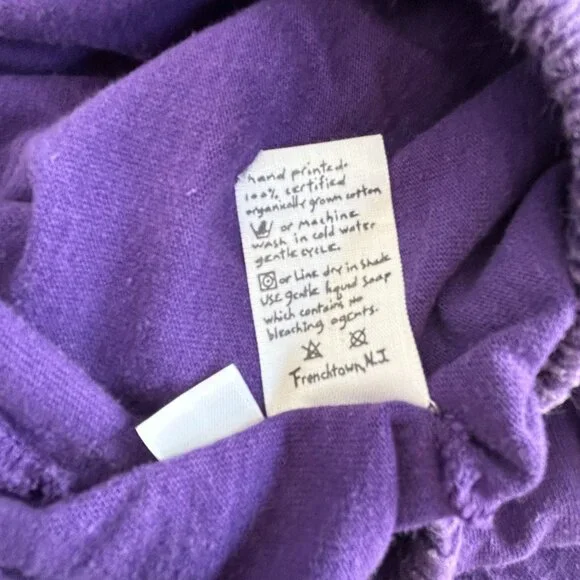 hand printed.
100% certified
organically grown cotton
or Machine
wash in cold water
gentle cycle.
or Line dry in shade
Use gentle liquid soap
which contains no
bleaching agents.
Frenchtown, N.J